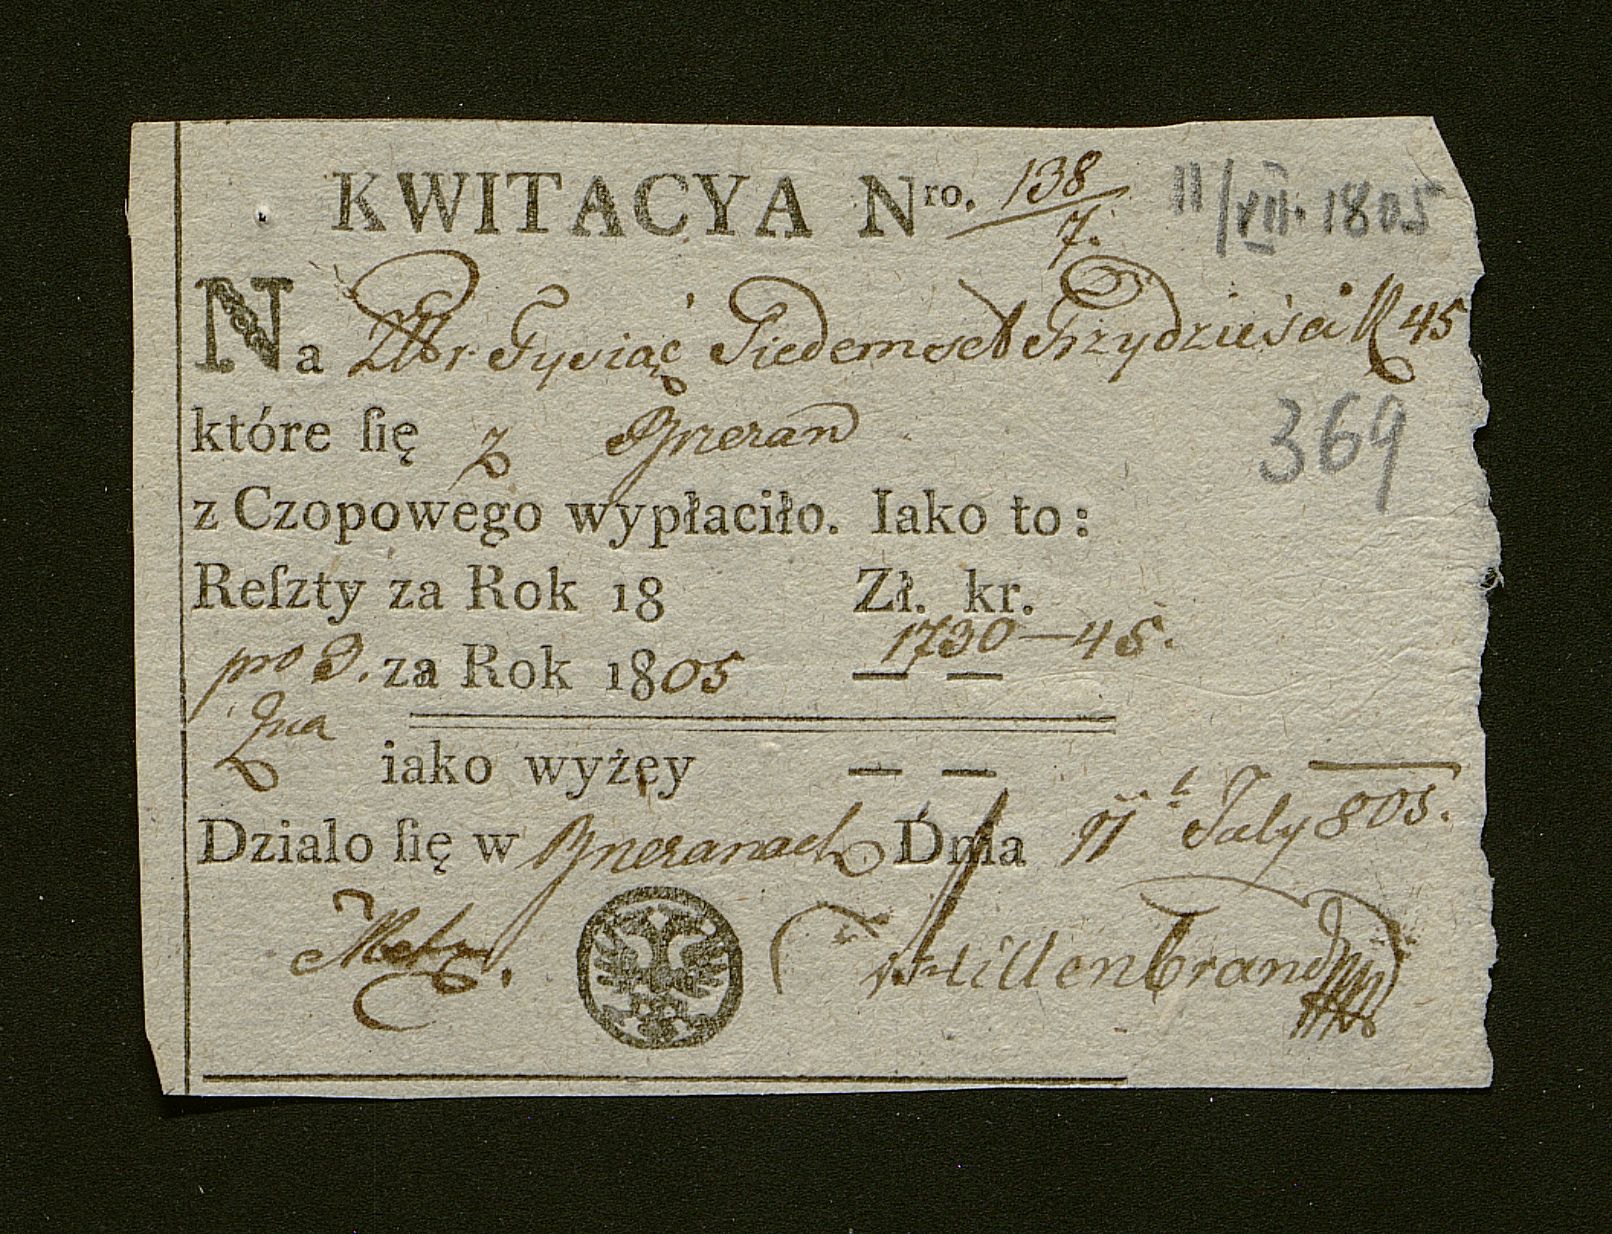 KWITACYA Nro. 138/7. 11/VII. 1805
Na ZłRr. Tysiąc Siedemset Trzydzieści K 45
które ſię z Brzezan
369
z Czopowego wypłaciło. Iako to:
Reſzty za Rok 18 Zł. kr.
pro 3. za Rok 1805 1730—45.
iako wyżęy — —
Dzialo ſię w Brzezanach Dnia 11 July 805.
Hillenbrand